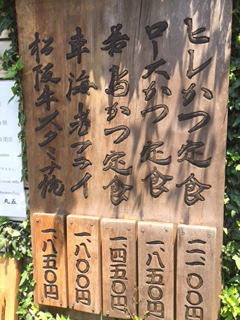 ヒレかつ定食
ロースかつ定食
若鳥かつ定食
車海老フライ
松阪牛スタミナ焼
二一〇〇円
一八五〇円
一四五〇円
一八〇〇円
一八五〇円
丸五